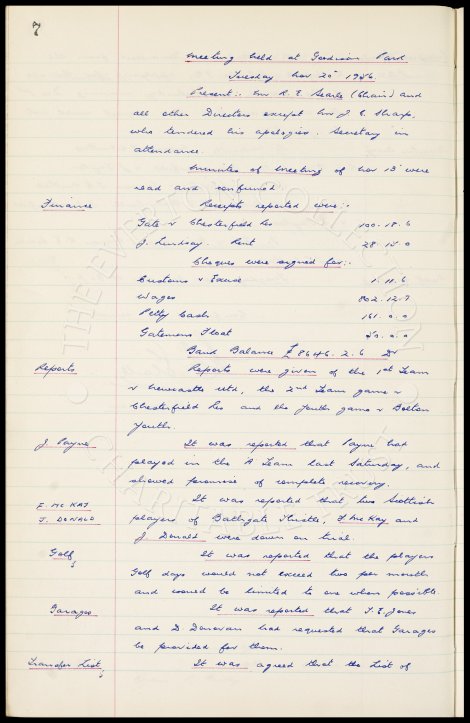 7
Meeting held at Goodison Park
Tuesday Nov 20th 1956
Present:- Mr R. E. Searle (Chair) and
all other Directors except Mr J. C. Sharp,
who tendered his apologies. Secretary in
attendance.
Minutes of Meeting of Nov 13th were
read and confirmed.
Finance Receipts reported were:-
Gate v Chesterfield Res 100.18.6
J. Lindsay. Rent
Cheques were signed for:-
Customs & Excise 1.11.6
Wages 802.12.7
Petty Cash 161.0.0
Gatemens Float
Bank Balance £8646.2.6 Dr
Reports Reports were given of the 1st Team
v Newcastle Utd, the 2nd Team game v
Chesterfield Res and the Youth game v Bolton
Youth.
J. Payne It was reported that Payne had
played in the 'A' Team last Saturday, and
showed promise of complete recovery.
F. McKAY It was reported that two Scottish
J. DONALD players of Bathgate Thistle, F McKay and
J Donald were down on trial.
Golf It was reported that the players
Golf days would not exceed two per month
and would be limited to one when possible
Garages It was reported that T.E. Jones
and D Donovan had requested that Garages
be provided for them.
Transfer List It was agreed that the List of
THE EVERTON COLLECTION
CHARITABLE